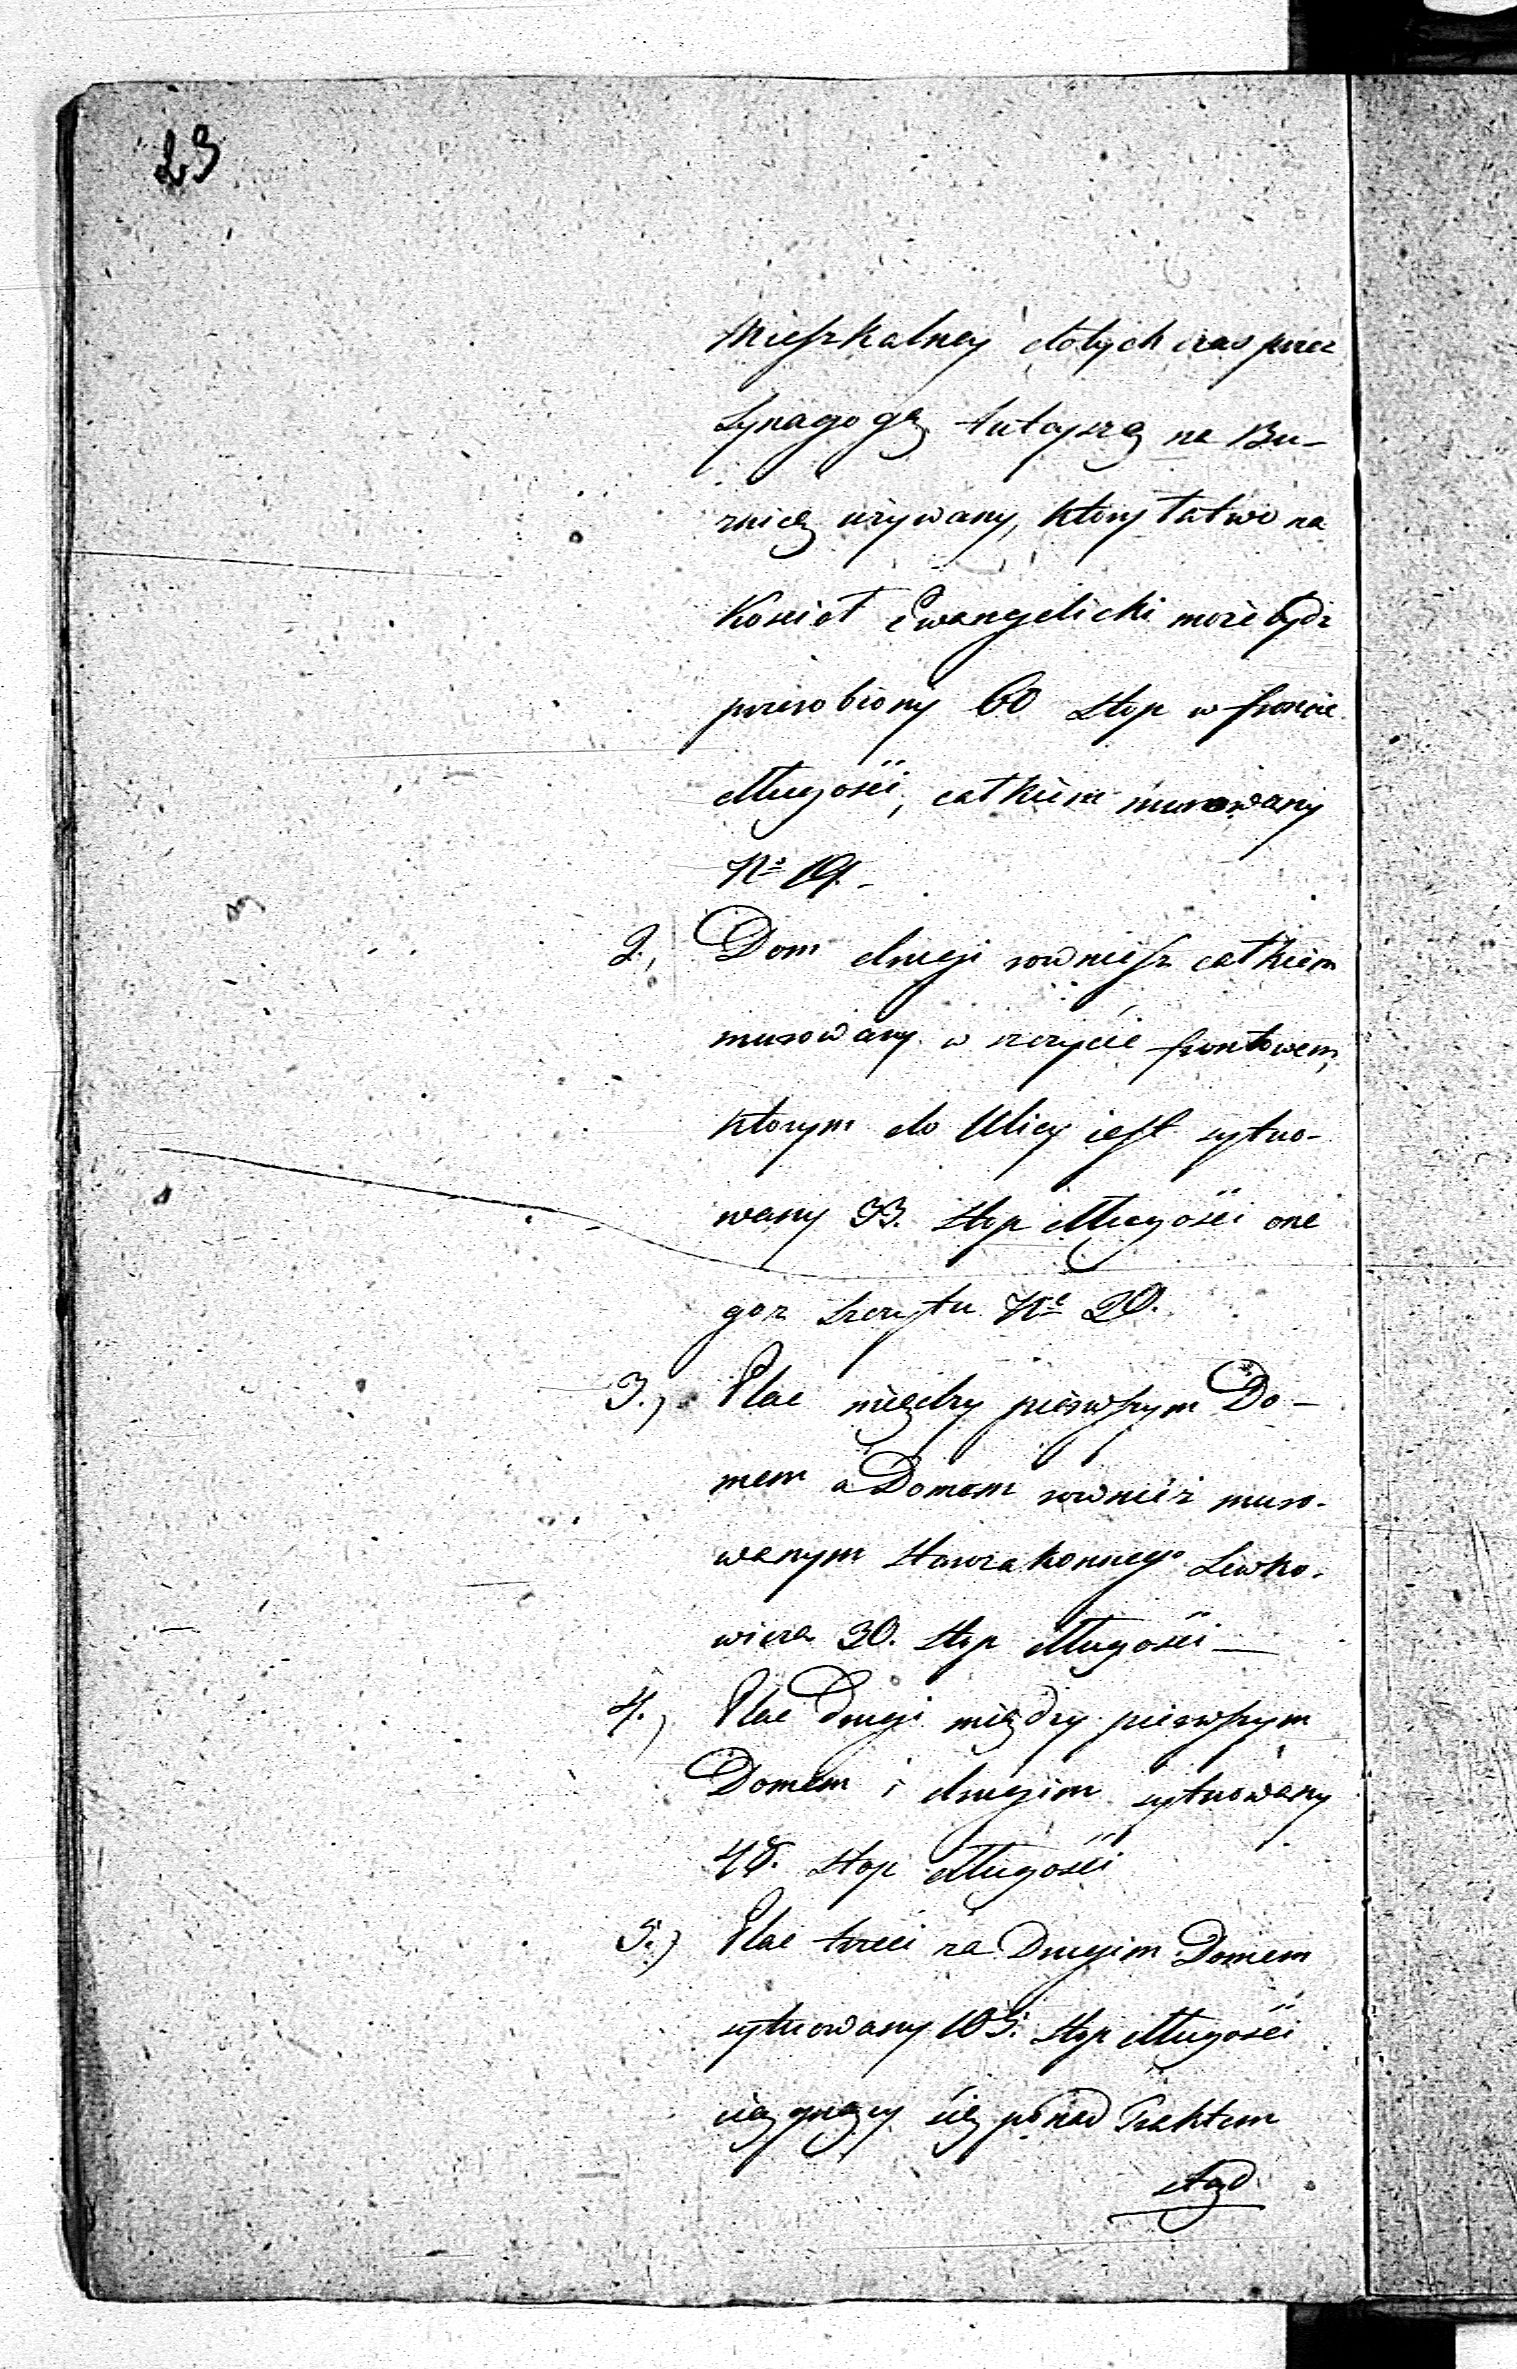 23
Mieszkalney dotychczas przez
Synagogę tuteyszą na Bu-
znicę używany, ktory łatwo na
Kościoł Ewangelicki może bydz
przerobiony 60 stop w froncie
długości, całkiem murowany
No 19.
2., Dom drugi rownież całkiem
murowany w szczycie frontowem,
ktorym do Ulicy iest sytuo-
wany 33. stop długości one
goz szczytu No 20.
3., Plac między pierwszym Do-
mem a Domem rownież muro-
wanym Starozakonnego Lewko-
wicza 30. stop długości
4., Plac Drugi między pierwszym
Domem i drugim sytuowany
48. stop długości
5.) Plac trzeci za Drugim Domem
sytuowany 105. stop długości
ciągnący się ponad Traktem
ztąd